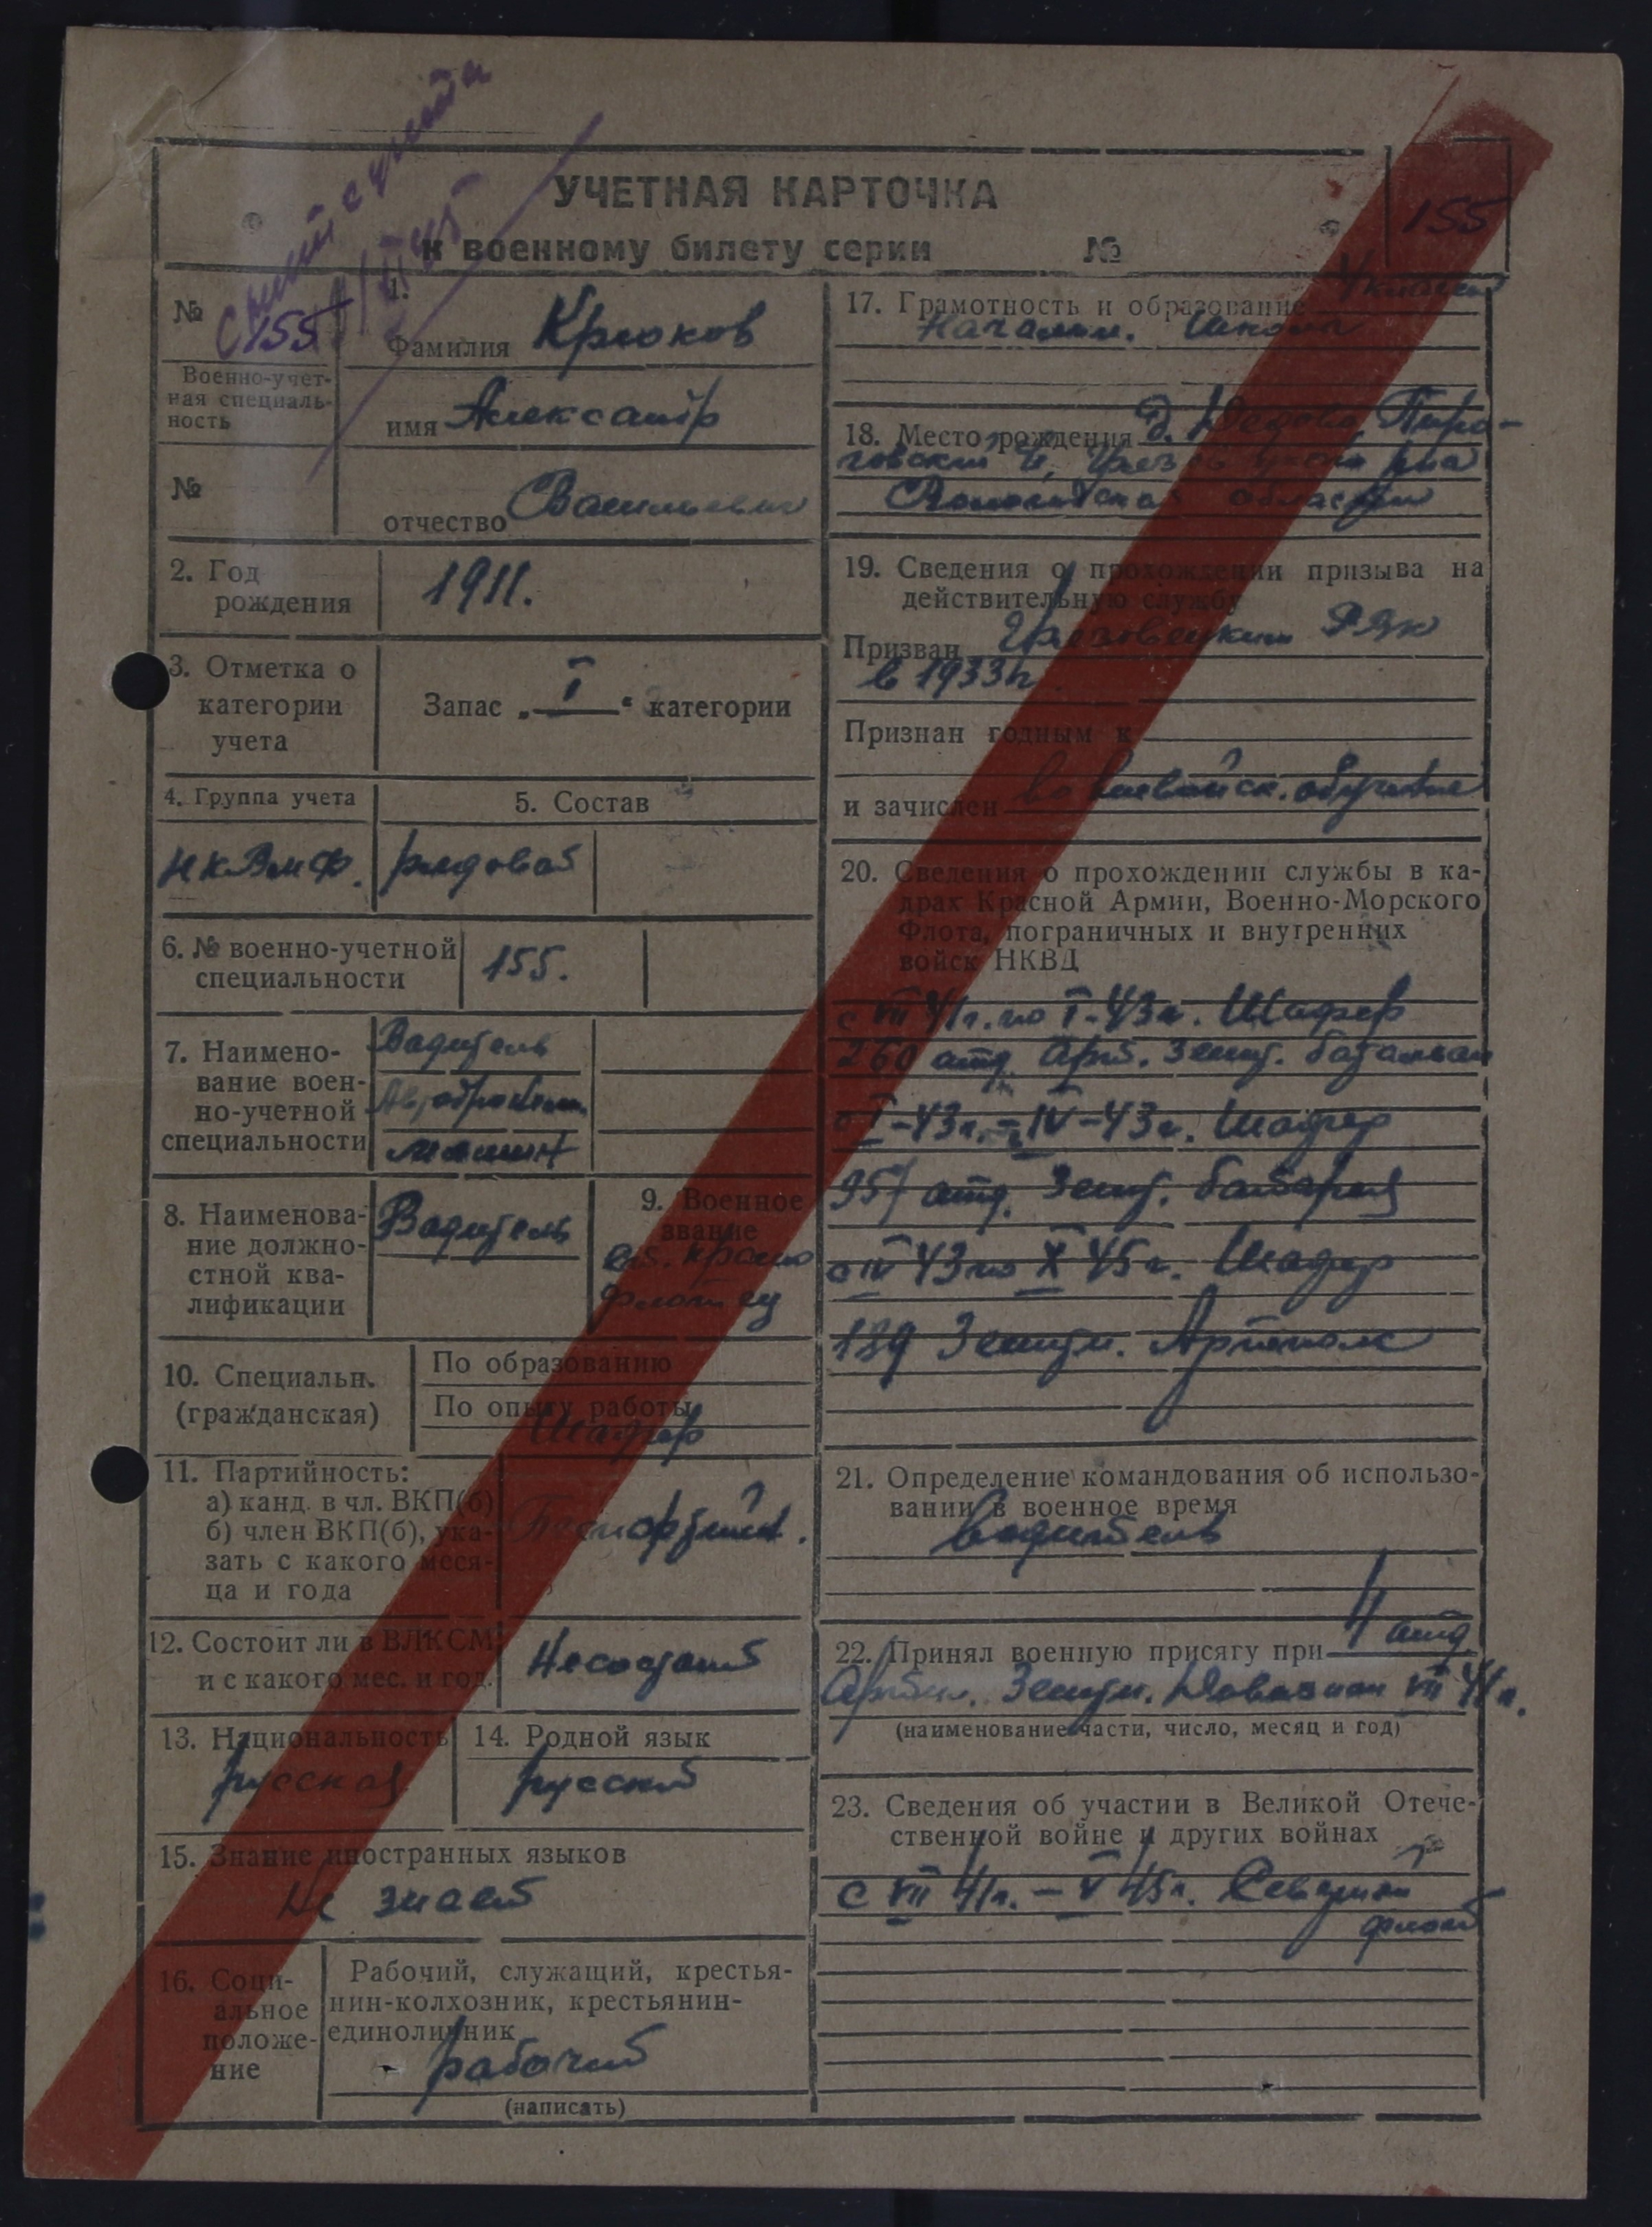 снят с учета
УЧЕТНАЯ КАРТОЧКА
к военному билету серии №
155
№ 155
Военно-учет-
ная специаль-
ность
№
1.
Фамилия Крюков
имя Александр
отчество Васильевич
2. Год
рождения
1911.
3. Отметка о
категории
учета
Запас „ I “ категории
4. Группа учета
НКВМФ.
5. Состав
рядовой
6. № военно-учетной
специальности
155.
7. Наимено-
вание воен-
но-учетной
специальности
Водитель
машин
8. Наименова-
ние должно-
стной ква-
лификации
Водитель
9. Военное
звание
ст. красно
флотец
10. Специальн.
(гражданская)
По образованию
По опыту работы
Шофер
11. Партийность:
а) канд. в чл. ВКП(б)
б) член ВКП(б), ука-
зать с какого меся-
ца и года
Беспартийн.
12. Состоит ли в ВЛКСМ
и с какого мес. и год.
Несостоит
13. Национальность
русская
14. Родной язык
русский
15. Знание иностранных языков
Не знает
16. Соци-
альное
положе-
ние
Рабочий, служащий, крестья-
нин-колхозник, крестьянин-
единоличник
рабочий
(написать)
17. Грамотность и образование 4 класса
Начальн. школа
18. Место рождения д.
Вологодская область
19. Сведения о прохождении призыва на
действительную службу
Призван Грязовецким РВК
в 1933г.
Признан годным к
и зачислен во вневойск. обучение
20. Сведения о прохождении службы в ка-
драх Красной Армии, Военно-Морского
Флота, пограничных и внутренних
войск НКВД
с VII 41г. по I-43г. Шофер
260 отд. Арт. Зенит. батальон
с I-43г. - IV-43г. Шофер
957 отд. Зенит. батарея
с IV 43 по X 45г. Шофер
189 Зенитн. Артполк
21. Определение командования об использо-
вании в военное время
водитель
22. Принял военную присягу при 4 отд.
Зенитн. VII 41г.
(наименование части, число, месяц и год)
23. Сведения об участии в Великой Отече-
ственной войне и других войнах
с VII 41г. - V 45г. Северный
флот